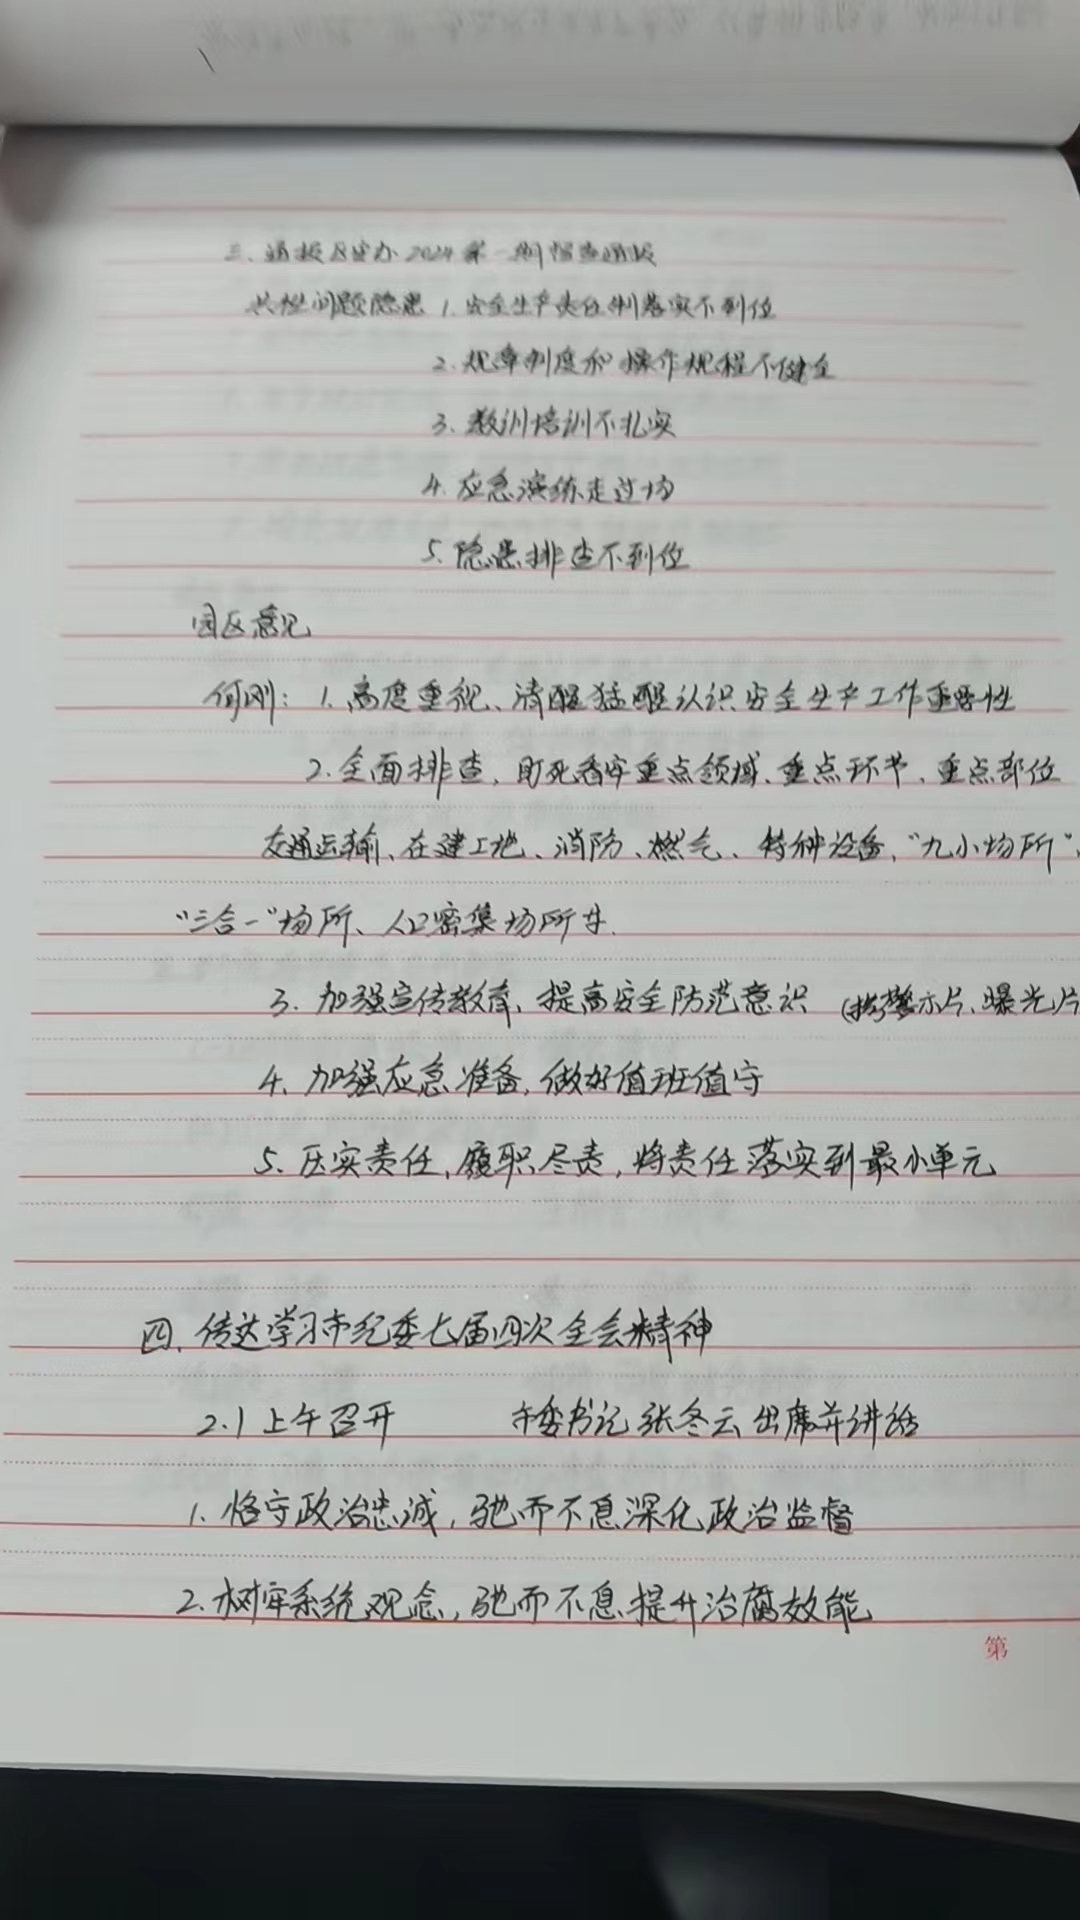 三、通报区安办2024第一期督查通报
共性问题隐患 1. 安全生产责任制落实不到位
2. 规章制度和操作规程不健全
3. 教训培训不扎实
4. 应急演练走过场
5. 隐患排查不到位
园区意见
何刚: 1. 高度重视、清醒猛醒认识安全生产工作重要性
2. 全面排查, 盯死看牢重点领域、重点环节、重点部位
交通运输、在建工地、消防、燃气、特种设备、“九小场所”、
“三合一”场所、人口密集场所等.
3. 加强宣传教育, 提高安全防范意识 (警示片、曝光片
4. 加强应急准备, 做好值班值守
5. 压实责任, 履职尽责, 将责任落实到最小单元
四、传达学习市纪委七届四次全会精神
2.1上午召开 市委书记张冬云出席并讲话
1. 恪守政治忠诚, 驰而不息深化政治监督
2. 树牢系统观念, 驰而不息提升治腐效能
第